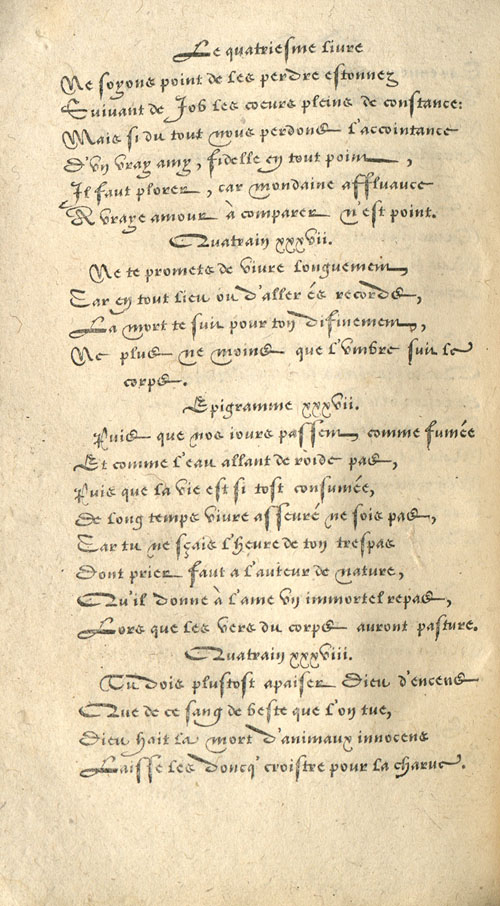 Le quatriesme livre
Ne soyons point de les perdre estonnez
Suivant de Job les coeurs pleins de constance:
Mais si du tout nous perdons l'accointance
D'vn vray amy, fidelle en tout point,
Il faut plorer, car mondaine affluance
A vraye amour à comparer n'est point.
Quatrain xxxvii.
Ne te promets de vivre longuement,
Car en tout lieu ou d'aller és recordé,
La mort te suit pour ton difinement,
Ne plus ne moins que l'vmbre suit le
corps.
Epigramme xxxvii.
Puis que nos iours passent comme fumée
Et comme l'eau allant de roide pas,
Puis que la vie est si tost consumée,
De long temps vivre asseuré ne sois pas,
Car tu ne sçais l'heure de ton trespas
Dont prier faut a l'auteur de nature,
Qu'il donne à l'ame vn immortel repas,
Lors que les vers du corps auront pasture.
Quatrain xxxviii.
Tu dois plustost apaiser Dieu d'encens
Que de ce sang de beste que l'on tue,
Dieu hait la mort d'animaux innocens
Laisse les doncq' croistre pour la charue.